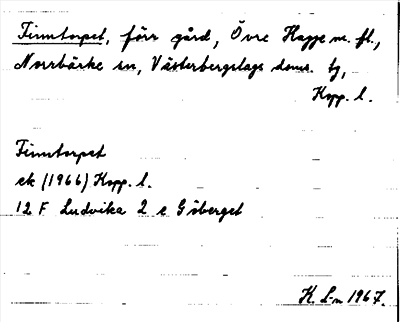 Finntorpet, förr gård, Övre Hagge m. fl.,
Norrbärke sn, Västerbergslags doms. tg,
Kopp. l.
Finntorpet
ek (1966) Kopp. l.
12 F Ludvika 2 e Gåberget
K. L-n 1967.